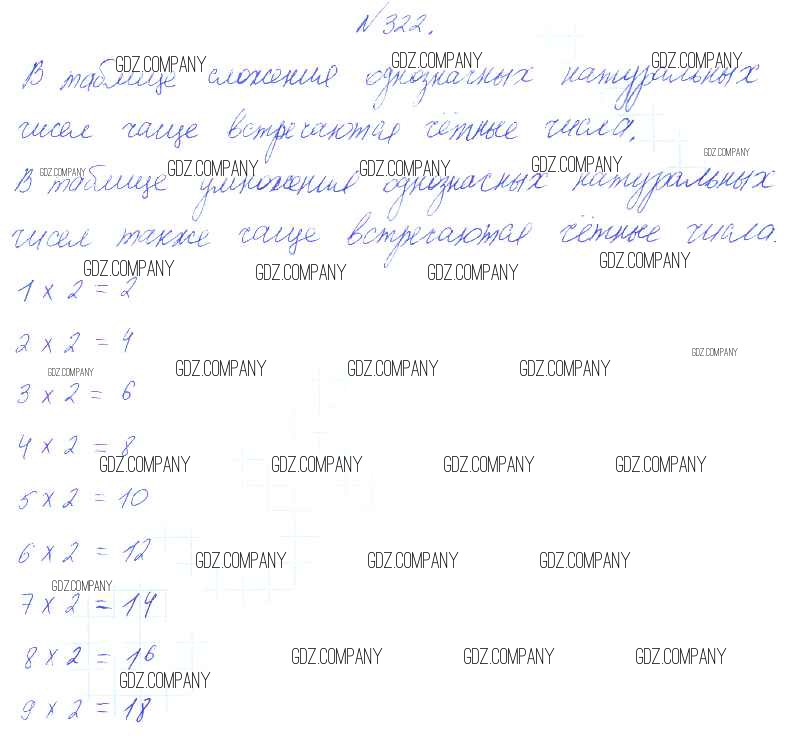 №322.
В таблице сложения однозначных натуральных
чисел чаще встречаются чётные числа.
В таблице умножения однозначных натуральных
чисел также чаще встречаются чётные числа.
1 x 2 = 2
2 x 2 = 4
3 x 2 = 6
4 x 2 = 8
5 x 2 = 10
6 x 2 = 12
7 x 2 = 14
8 x 2 = 16
9 x 2 = 18
GDZ.COMPANY GDZ.COMPANY GDZ.COMPANY
GDZ.COMPANY
GDZ.COMPANY GDZ.COMPANY GDZ.COMPANY GDZ.COMPANY
GDZ.COMPANY GDZ.COMPANY GDZ.COMPANY GDZ.COMPANY
GDZ.COMPANY
GDZ.COMPANY GDZ.COMPANY GDZ.COMPANY GDZ.COMPANY
GDZ.COMPANY GDZ.COMPANY GDZ.COMPANY GDZ.COMPANY
GDZ.COMPANY GDZ.COMPANY GDZ.COMPANY
GDZ.COMPANY
GDZ.COMPANY GDZ.COMPANY GDZ.COMPANY
GDZ.COMPANY